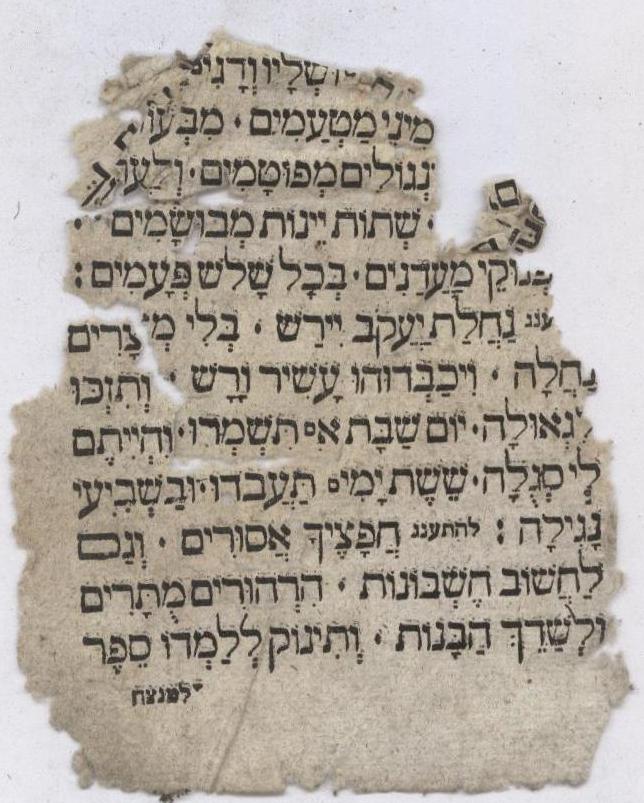 שְׂלָיו וְדָגִי
מִינֵי מַטְעַמִּים · מִבְּעוֹ
נְגוֹלִים מְפוּטָמִים · וְלַעֲרוֹ
שְׁתוֹת יֵינוֹת מְבוּשָׂמִים ·
ם
נוּקֵי מַעֲדַנִּים · בְּכָל שָׁלֹשׁ פְּעָמִים :
ענג נַחֲלַת יַעֲקֹב יִירַשׁ · בְּלִי מְצָרִים
נַחֲלָה · וִיכַבְּדוּהוּ עָשִׁיר וָרָשׁ · וְתִזְכּוּ
לִגְאוּלָה · יוֹם שַׁבָּת אִם תִּשְׁמְרוּ · וִהְיִיתֶם
לִי סְגֻלָּה · שֵׁשֶׁת יָמִים תַּעַבְדוּ · וּבַשְּׁבִיעִי
נָגִילָה : להתענג חֲפָצֶיךָ אֲסוּרִים · וְגַם
לַחֲשׁוֹב חֶשְׁבּוֹנוֹת · הִרְהוּרִים מֻתָּרִים
וּלְשַׁדֵּךְ הַבָּנוֹת · וְתִינוֹק לְלַמְּדוֹ סֵפֶר
למנצח